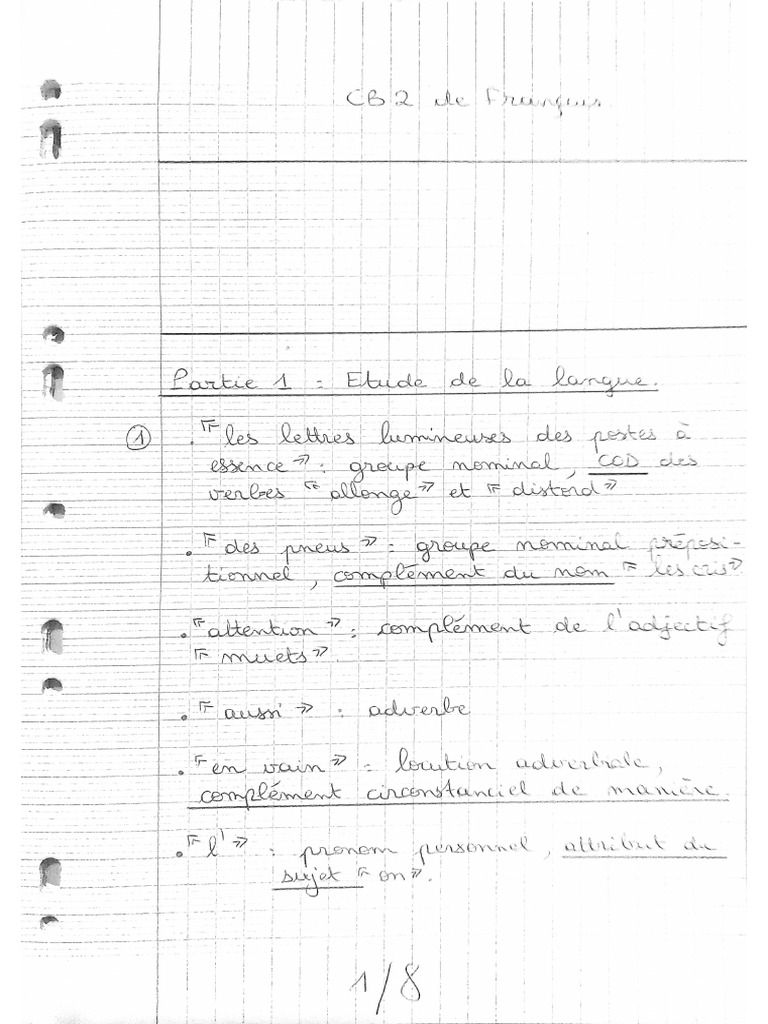 CB2 de Français
Partie 1 : Etude de la langue.
① . « les lettres lumineuses des postes à
essence » : groupe nominal, COD des
verbes « allonge » et « distord »
. « des pneus » : groupe nominal préposi-
tionnel, complément du nom « les cris »
. « attention » : complément de l'adjectif
« muets ».
. « aussi » : adverbe
. « en vain » : locution adverbiale,
complément circonstanciel de manière.
. « l' » : pronom personnel, attribut du
sujet « on ».
1/8